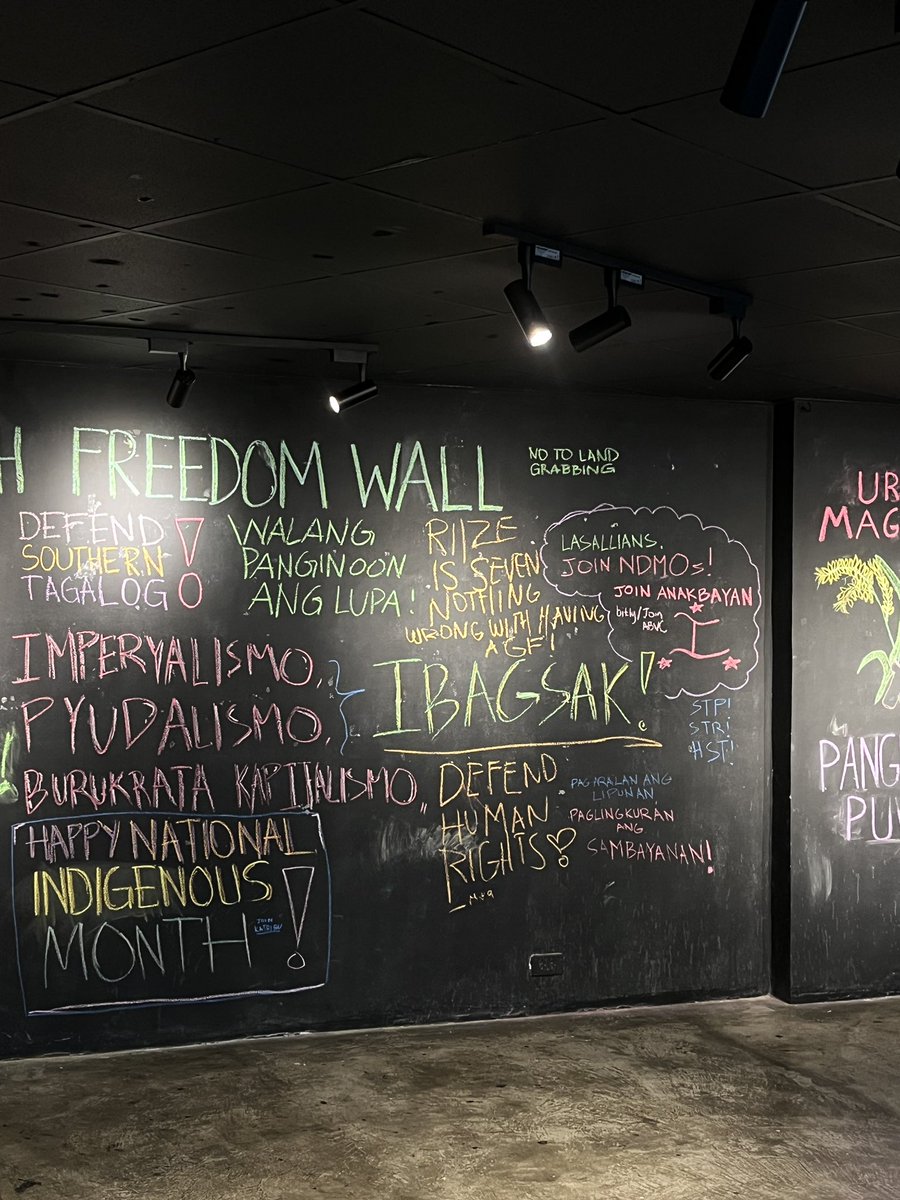 H FREEDOM WALL
NO TO LAND
GRABBING
DEFEND
SOUTHERN
TAGALOG!
WALANG
PANGINOON
ANG LUPA!
RIIZE
IS SEVEN
NOTHING
WRONG WITH HAVING
AGF!
LASALLIANS,
JOIN NDMOs!
JOIN ANAKBAYAN
IMPERYALISMO,
PYUDALISMO,
BURUKRATA KAPITALISMO,
IBAGSAK!
STP!
STR!
HST!
DEFEND
HUMAN
RIGHTS!
PAG-ARALAN ANG
LIPUNAN
PAGLINGKURAN
ANG
SAMBAYANAN!
HAPPY NATIONAL
INDIGENOUS
MONTH!
JOIN
UR
MAG
PANG
PU